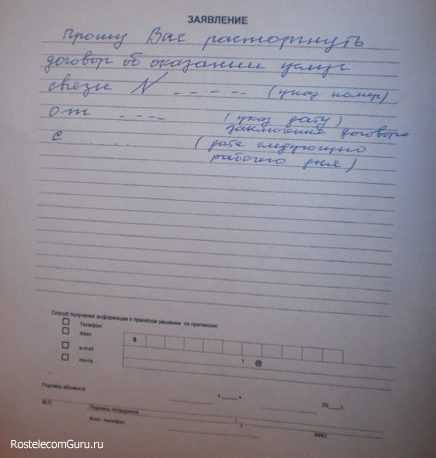 ЗАЯВЛЕНИЕ
Прошу Вас расторгнуть
договор об оказании услуг
связи N _ _ _ _ _ (указ номер)
от _ _ _ _ (указ дату)
заключения договора
с . . . . (дата следующего
рабочего дня)
Способ получения информации о принятом решении по претензии:
Телефон
Факс
8
e-mail
@
почта
Подпись абонента
20
М.П.
Подпись сотрудника
Конт. телефон
RostelecomGuru.ru